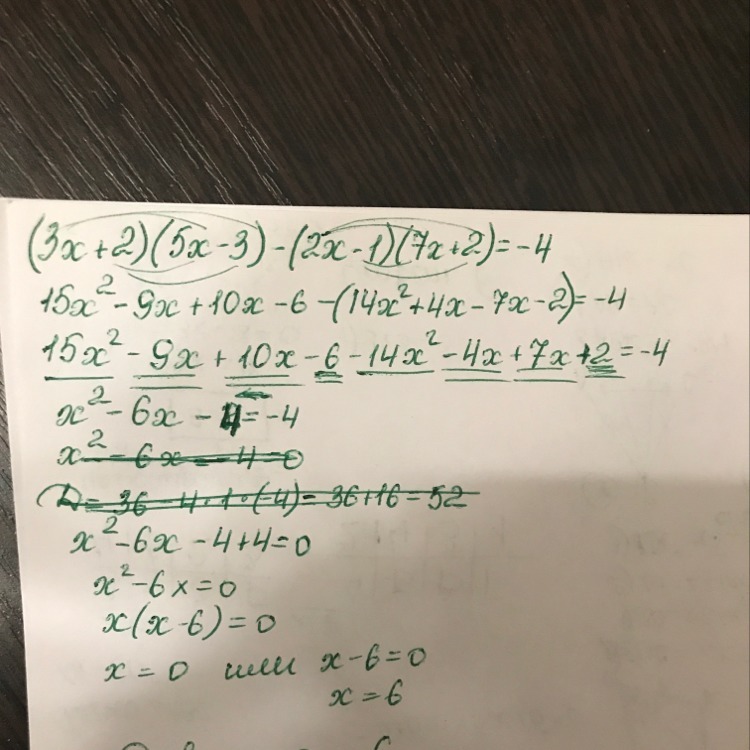 (3x+2)(5x-3)-(2x-1)(7x+2)=-4
15x²-9x+10x-6-(14x²+4x-7x-2)=-4
15x²-9x+10x-6-14x²-4x+7x+2=-4
x²-6x-4=-4
x²-6x-4=0
D=36-4·1·(-4)=36+16=52
x²-6x-4+4=0
x²-6x=0
x(x-6)=0
x=0 или x-6=0
x=6